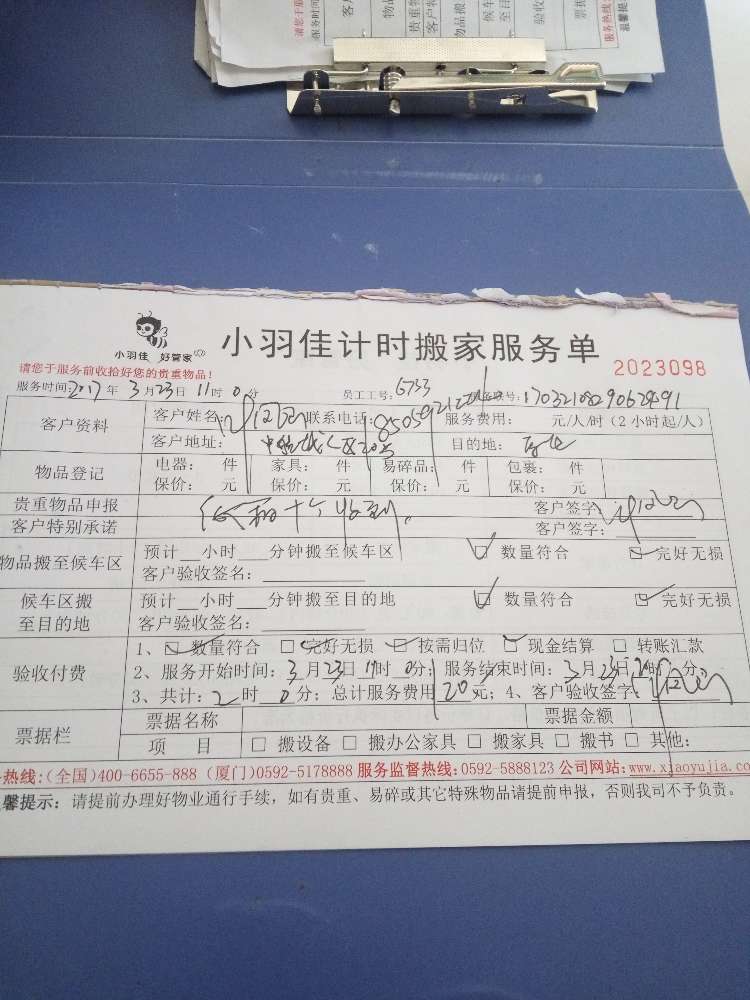 小羽佳 好管家
小羽佳计时搬家服务单
2023098
请您于服务前收拾好您的贵重物品!
服务时间:2017年 3月23日 11时 0分 员工工号:6733
客户资料
客户姓名: 联系电话: 服务费用: 元/人/时(2小时起/人)
客户地址: 目的地:
物品登记
电器: 件 家具: 件 易碎品: 件 包裹: 件
保价: 元 保价: 元 保价: 元 保价: 元
贵重物品申报 客户签字:
客户特别承诺 客户签字:
物品搬至候车区
预计__小时___分钟搬至候车区 数量符合 完好无损
客户验收签名:
候车区搬
至目的地
预计__小时___分钟搬至目的地 数量符合 完好无损
客户验收签名:
验收付费
1、 数量符合 完好无损 按需归位 现金结算 转账汇款
2、服务开始时间:3月23日11时 0分;服务结束时间:3月23日 时 分
3、共计:2时 0分;总计服务费用 20元;4、客户验收签字:
票据栏
票据名称 票据金额
项 目 □ 搬设备 □ 搬办公家具 □ 搬家具 □ 搬书 □ 其他:
热线:(全国)400-6655-888 (厦门)0592-5178888 服务监督热线:0592-5888123 公司网站:www.xiaoyujia.co
馨提示:请提前办理好物业通行手续,如有贵重、易碎或其它特殊物品请提前申报,否则我司不予负责。